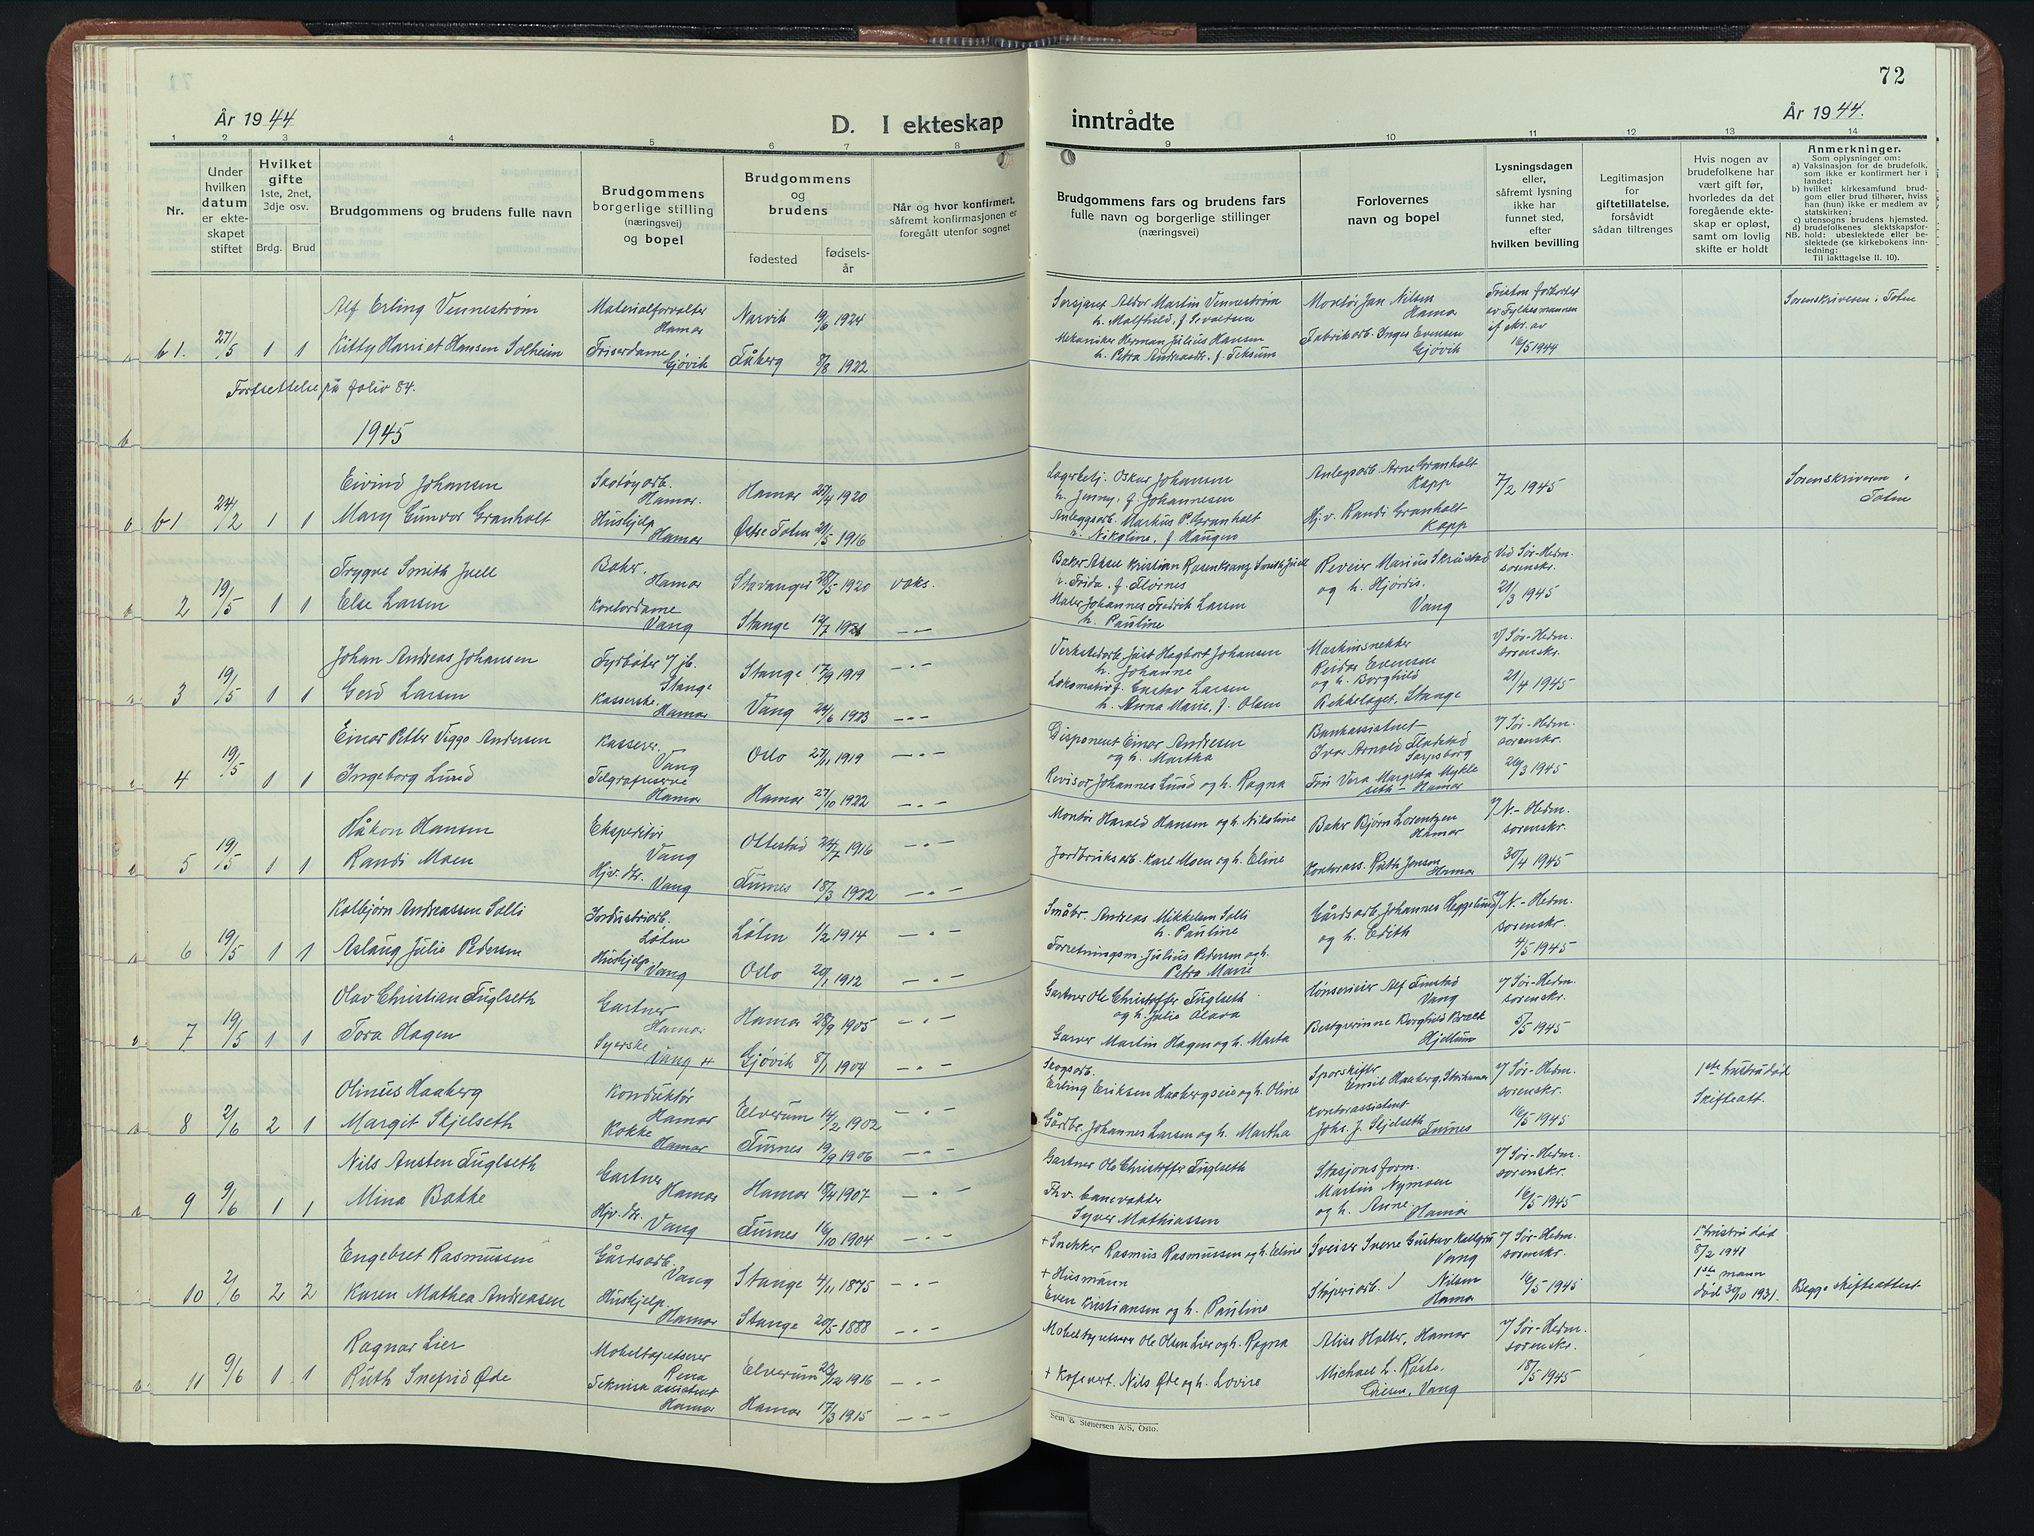 72
År 1944
D. I ekteskap
inntrådte
År 1944.
1 2 3 4 5 6 7 8 9 10 11 12 13 14
Nr.
Under hvilken datum er ekteskapet stiftet
Hvilket gifte
1ste, 2net, 3dje osv.
Brdg. Brud
Brudgommens og brudens fulle navn
Brudgommens borgerlige stilling (næringsvei) og bopel
Brudgommens og brudens
fødested
fødselsår
Når og hvor konfirmert, såfremt konfirmasjonen er foregått utenfor sognet
Brudgommens fars og brudens fars
fulle navn og borgerlige stillinger
(næringsvei)
Forlovernes
navn og bopel
Lysningsdagen
eller,
såfremt lysning
ikke har
funnet sted,
efter
hvilken bevilling
Legitimasjon
for
giftetillatelse,
forsåvidt
sådan tiltrenges
Hvis nogen av
brudefolkene har
vært gift før,
hvorledes da det
foregående ekte-
skap er opløst,
samt om lovlig
skifte er holdt
Anmerkninger.
Som oplysninger om:
a) Vaksinasjon for de brudefolk, som ikke er konfirmert her i landet;
b) hvilket kirkesamfund brudgom eller brud tilhører, hviss han (hun) ikke er medlem av statskirken;
c) utensogns brudens hjemsted.
d) brudefolkenes slektskapsforhold: ubeslektede eller beslektede (se kirkebokens innledning:
NB.
Til iakttagelse II. 10).
Alf Erling Vennestrøm
Materialforvalter
Hamar
Narvik 19/6 1924
Martin Vennestrøm
Montør Jan Nilsen
Hamar
Fristen forkortet
av Fylkesmannen
Sorenskriveren i Toten
b 1. 27/5 1 1
Kitty Harriet Hansen Solheim
Friserdame
Gjøvik
Fåberg 8/8 1922
Mekaniker Herman Julius Hansen
Fabrikarb. Inger Evensen
Gjøvik
16/5 1944
Fortsettelse på folio 84.
1945
Eivind Johansen
Skotøyarb.
Hamar.
Hamar 25/4 1920
Oskar Johansen
h. Jenny, f. Johannesen
Anlegsarb. Arne Granholt
Kapp
7/2 1945
Sorenskriveren i
Toten
b 1 24/2 1 1
Mary Gunvor Granholt
Hushjelp
Hamar
Østre Toten 21/5 1916
Anleggsarb. Markus P. Granholt
h. Nikoline, f. Haugen
Hj.v. Randi Granholt
Kapp
Trygve Smith Juell
Baker
Hamar
Stavanger 28/5 1920 vaks.
Baker Aksel Kristian Rosenkranz Smith Juell
h. Frida, f. Flornes
Marius Skråstad
og h. Hjørdis.
Vang
Ved Sør-Hedm.
sorenskr.
21/3 1945
2 19/5 1 1
Else Larsen
Kontordame
Vang
Stange 12/7 1921
Maler Johannes Fredrik Larsen
h. Pauline
Johan Andreas Johansen
Fyrbøter v/ jb.
Stange
Stange 17/9 1919
Verkstedarb. Just Hagbart Johansen
h. Johanne
Maskinsnekker
Reidar Evensen
og h. Borghild
Bekkelaget, Stange
v/ Sør-Hedm.
sorenskr.
21/4 1945
3 19/5 1 1
Gerd Larsen
Kasserske
Hamar
Vang 24/6 1923
Lokomotivf. Gustav Larsen
h. Anna Marie, f. Olsen
Einar Petter Viggo Andersen
Kasserer
Vang
Oslo 27/11 1919
Disponent Einar Andresen
og h. Martha
Bankassistent
Ivar Arnold Fladstad
Sarpsborg
v/ Sør-Hedm.
sorenskr.
26/3 1945
4 19/5 1 1
Ingeborg Lund
Hamar
Hamar 27/10 1922
Revisor Johannes Lund og h. Ragna
Fru Vera Margreta Mykle
seth - Hamar
Håkon Hansen
Ekspeditør
Vang
Ottestad 24/7 1916
Montør Harald Hansen og h. Nikoline
Baker Bjørn Lorentzen
Hamar
v/ N.-Hedm.
sorenskr.
30/4 1945
5 19/5 1 1
Randi Moen
Hjv. dtr.
Vang
Furnes 18/3 1922
Jordbruksarb. Karl Moen og h. Eline
Kontorass. Ruth Jenson
Hamar
Kolbjørn Andreassen Solli
Industriarb.
Løten
Løten 1/2 1914
Småbr. Andreas Mikkelsen Solli
h. Pauline
Gårdsarb. Johannes Heggelund
og h. Edith
v/ N.-Hedm.
sorenskr.
4/5 1945
6 19/5 1 1
Aslaug Julie Pedersen
Hushjelp
Vang
Oslo 20/1 1912
Forretningsm. Julius Pedersen og h.
Petra Marie
Olav Christian Fuglseth
Gartner
Hamar
Hamar 28/9 1905
Gartner Ole Christoffer Fuglseth
og h. Julie Olava
Hønserieier Alf Finstad
Vang
v/ Sør-Hedm.
sorenskr.
5/5 1945
7 19/5 1 1
Tora Hagen
Syerske
Vang
Gjøvik 8/1 1904
Garver Martin Hagen og h. Marta
Bestyrerinne Borghild
Hjellum
Olinus Haaberg
Konduktør
Hamar
Elverum 14/2 1902
Skogsarb.
Erling Eriksen Haabergseie og h. Oline
Sporskifter
Emil Haaberg,
v/ Sør-Hedm.
sorenskr.
16/5 1945
1ste hustru død
Skifteatt.
8 2/6 2 1
Margit Skjelseth
Kokke
Hamar
Furnes 19/9 1906
Gårdbr. Johannes Larsen og h. Martha
Kontorassistent
Johs. J. Skjelseth
Furnes
Nils Austen Fuglseth
Gartner
Hamar
Hamar 18/4 1907
Gartner Ole Christoffer Fuglseth
Stasjonsform.
Martin Nymoen
og h. Anne.
Hamar
v/ Sør-Hedm.
sorenskr.
16/5 1945
9 9/6 1 1
Mina Bakke
Hjv. dtr.
Vang
Furnes 16/10 1904
Fhv. banevokter
Syver Mathiassen
Engebret Rasmussen
Gårdsarb.
Vang
Stange 4/11 1875
+ Snekker Rasmus Rasmussen og h. Eline
Sveiser Sverre Gustav
Vang
v/ Sør-Hedm.
sorenskr.
16/5 1945
1 hustru død
8/2 1941
1ste mann
død 30/10 1931.
Begge skifteattest
10 2/6 2 2
Karen Mathea Andreasen
Hushjelp
Hamar
Stange 20/5 1888
+ Husmann
Even Kristiansen og h. Pauline
Støperiarb. J Nilsen
Hamar
Ragnar Lier
Møbeltapetserer
Rena
Elverum 22/12 1916
Møbeltapetserer Ole Olsen Lier og h. Ragna
Alise Holter, Hamar
v/ Sør-Hedm.
sorenskr.
18/5 1945
11 9/6 1 1
Ruth Snefrid Øde
Teknisk assistent
Hamar
Hamar 17/3 1915
+ Kafevert Nils Øde og h. Lovise
Michael L. Røste.
Vang
Sem & Stenersen A/S, Oslo.